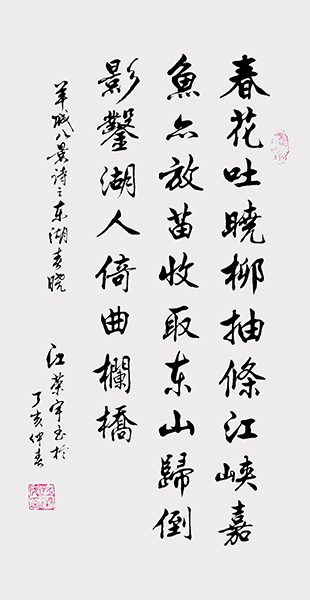 春花吐曉柳抽條江峽嘉
魚亦放苗收取东山歸倒
影鑿湖人倚曲欄橋
羊城八景诗之东湖春晓
江榮宇书於
丁亥仲春